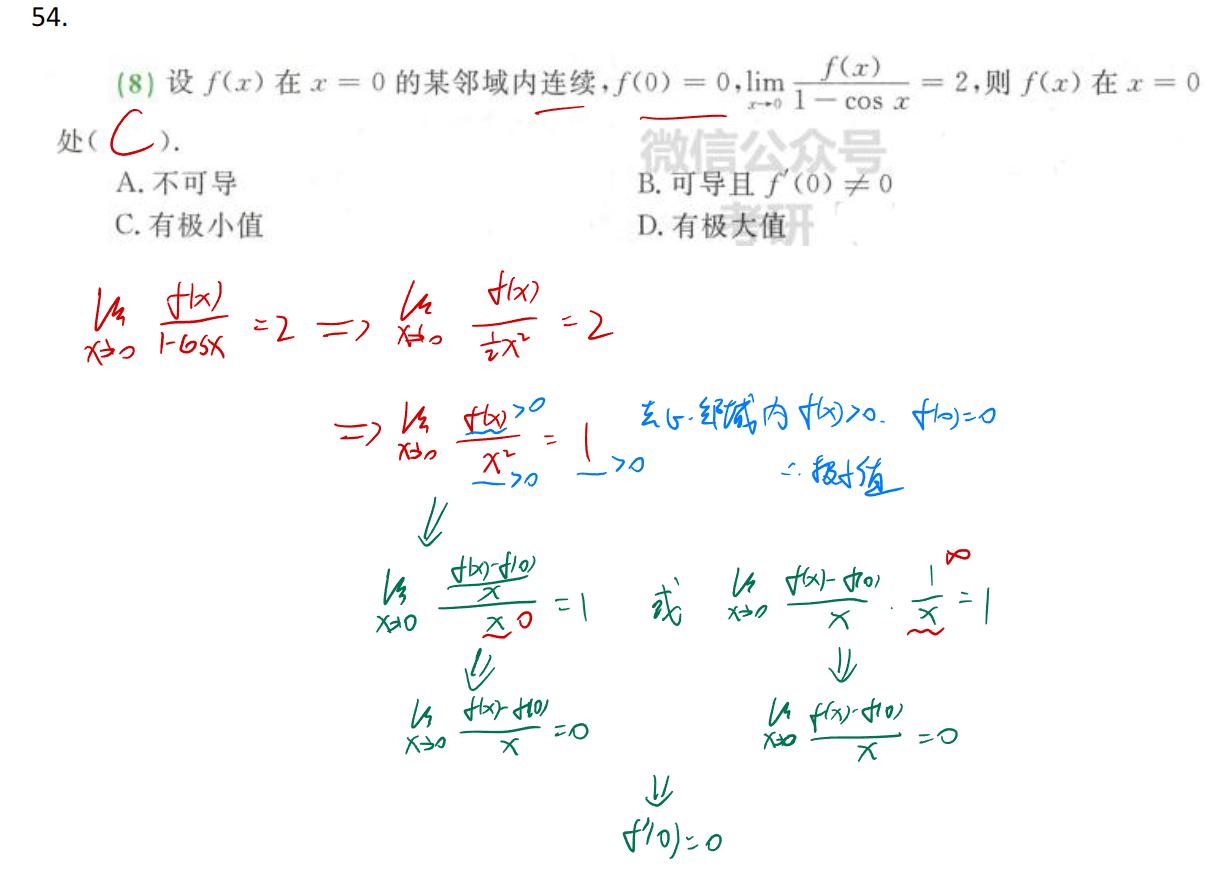 54.
(8) 设 f(x) 在 x = 0 的某邻域内连续, f(0) = 0, lim x→0 f(x)/(1 − cos x) = 2, 则 f(x) 在 x = 0
处( C ).
微信公众号
A. 不可导 B. 可导且 f′(0) ≠ 0
C. 有极小值 D. 有极大值
考研
lim x→0 f(x)/(1-cosx) = 2 => lim x→0 f(x)/(½x²) = 2
=> lim x→0 f(x)/x² = 1 >0 >0 >0 去心邻域内 f(x)>0. f(0)=0
∴ 极小值
⇓
lim x→0 ((f(x)-f(0))/x)/x = 1 0 或 lim x→0 (f(x)-f(0))/x · 1/x = 1 ∞
⇓ ⇓
lim x→0 (f(x)-f(0))/x = 0 lim x→0 (f(x)-f(0))/x = 0
⇓
f′(0) = 0